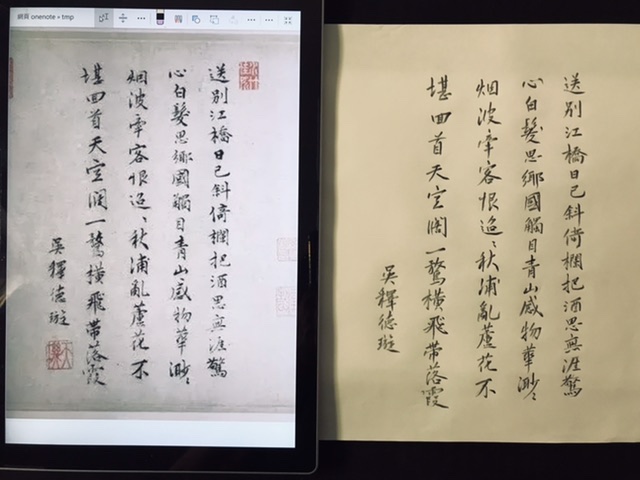 網頁 onenote » tmp
送別江橋日已斜倚欄把酒思無涯驚
心白髮思鄉國觸目青山感物華渺〻
烟波牽客恨迢〻秋浦亂蘆花不
堪回首天空闊一鶩橫飛帶落霞
吳釋德璇
送別江橋日已斜倚欄把酒思無涯驚
心白髮思鄉國觸目青山感物華渺〻
烟波牽客恨迢〻秋浦亂蘆花不
堪回首天空闊一鶩橫飛帶落霞
吳釋德璇